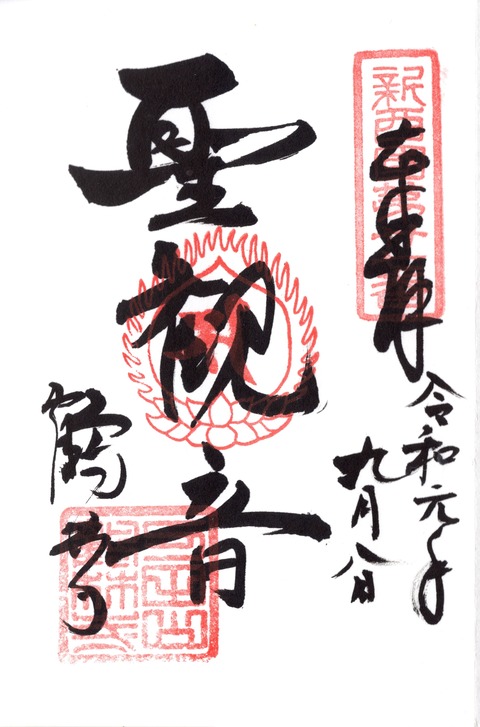 新西国第
奉拝
令和元年
九月八日
聖観音
鶴林寺